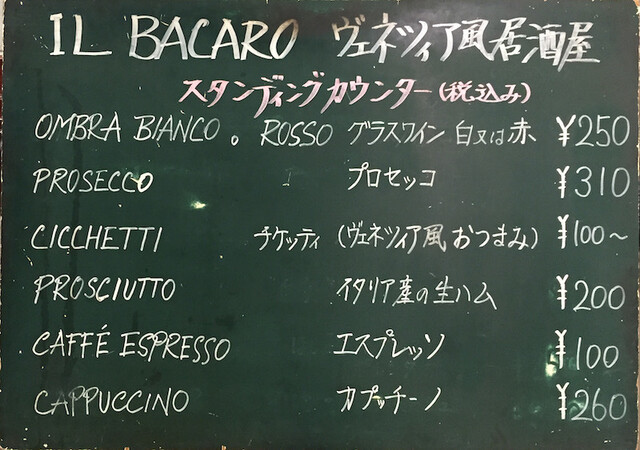 IL BACARO ヴェネツィア風居酒屋
スタンディングカウンター(税込み)
OMBRA BIANCO 。 ROSSO グラスワイン 白又は赤 ¥250
PROSECCO プロセッコ ¥310
CICCHETTI チケッティ (ヴェネツィア風 おつまみ) ¥100〜
PROSCIUTTO イタリア産の生ハム ¥200
CAFFÉ ESPRESSO エスプレッソ ¥100
CAPPUCCINO カプッチーノ ¥260